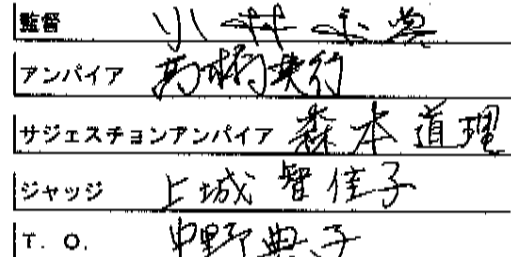 監督 小井
アンパイア 高橋英行
サジェスチョンアンパイア 森本道理
ジャッジ 上城智佳子
T. O. 中野典子